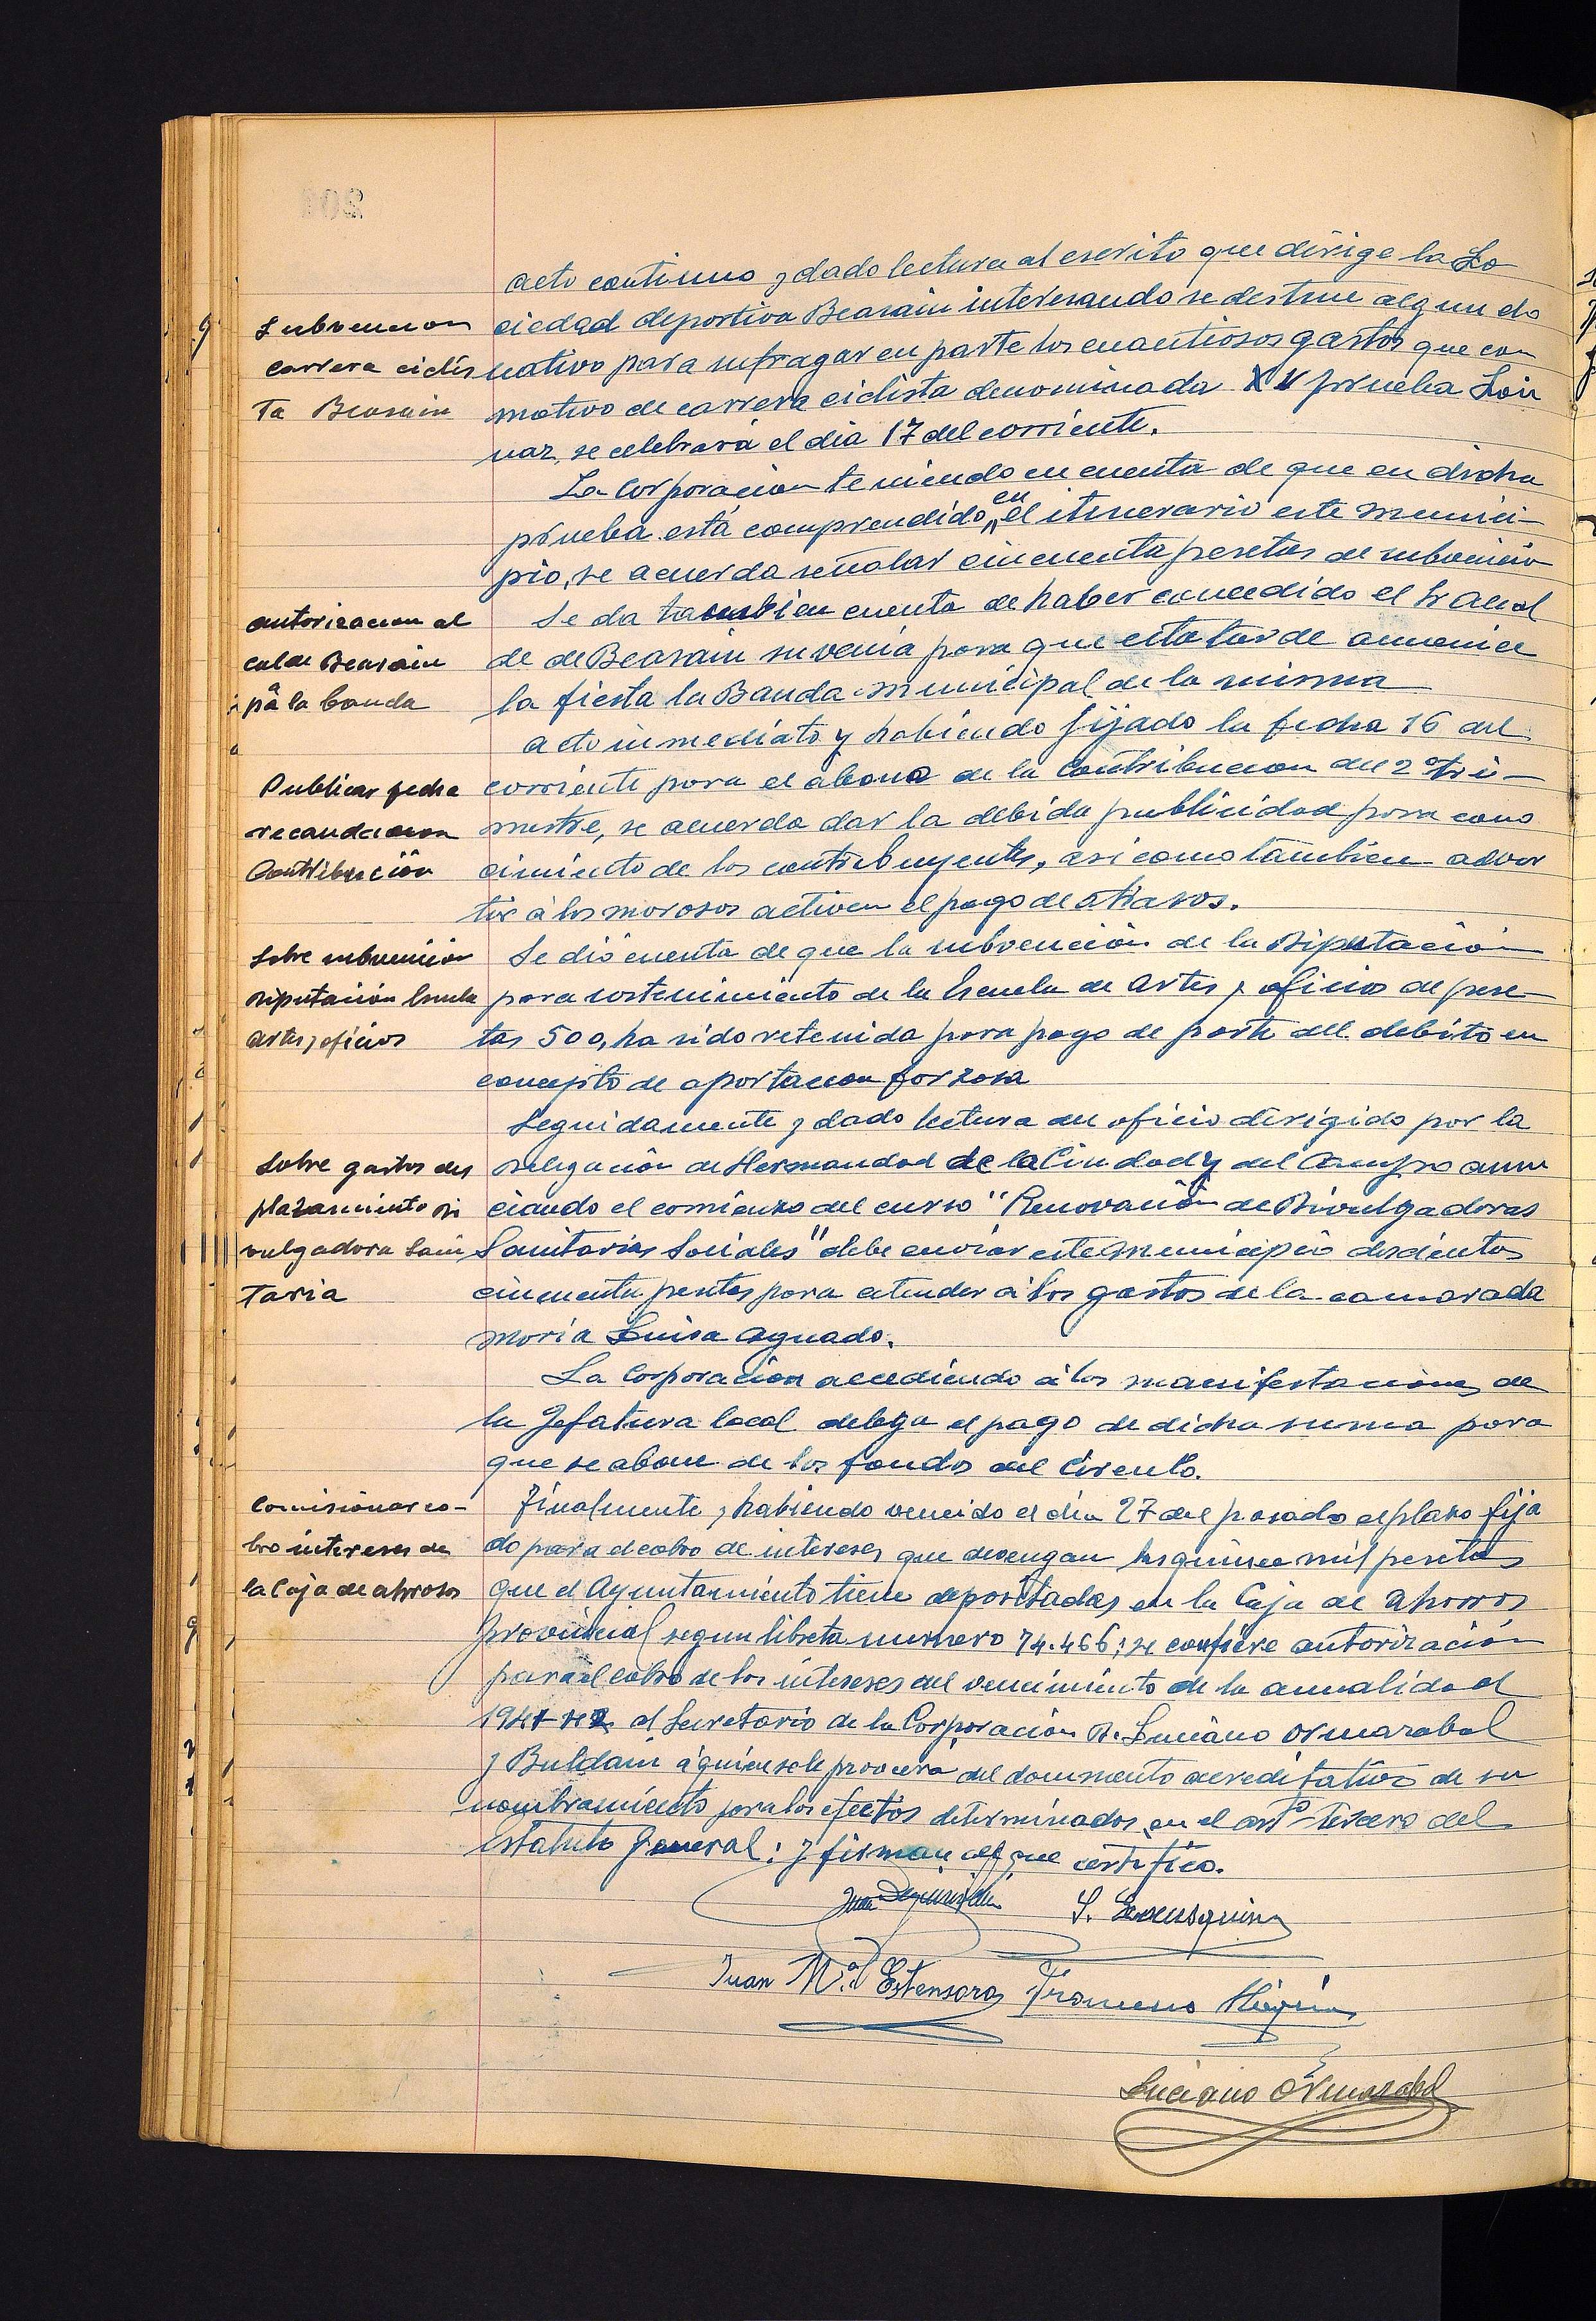 Acto continuo y dado lectura al escrito que dirige la So
Subvencion
ciedad deportiva Beasain interesando se destine algun do
carrera ciclis
nativo para sufragar en parte los cuantiosos gastos que con
ta Beasain
motivo de carrera ciclista denominada prueba Loi
naz, se celebrará el dia 17 del corriente.
La Corporacion teniendo en cuenta de que en dicha
prueba está comprendido en el itinerario este munici-
pio, se acuerda señalar cincuenta pesetas de subvención
autorizacion al
Se da tambien cuenta de haber concedido el Sr Alcal
cal de Beasain
de de Beasain su venia para que esta tarde amenice
pª la banda
la fiesta la Banda municipal de la misma
Acto inmediato y habiendo fijado la fecha 16 del
Publicar fecha
corriente para el abono de la Contribucion del 2º tri-
recaudacion
mestre, se acuerda dar la debida publicidad para cono
Contribución
cimiento de los contribuyentes, asi como tambien adver
tir á los morosos activen el pago de atrasos.
Sobre subvención
Se dió cuenta de que la subvención de la Diputación
Diputación Escuela
para sostenimiento de la Escuela de Artes y oficios de pese-
artes y oficios
tas 500, ha sido retenida para pago de parte del debito en
concepto de aportacion forzosa
Seguidamente y dado lectura del oficio dirigido por la
Sobre gastos des
Delegación de Hermandad de la Ciudad y del Campo anun
plazamiento Di
ciando el comienzo del curso "Renovación de Divulgadoras
vulgadora Sani
Sanitarias Sociales" debe enviar este municipio doscientas
taria
cincuenta pesetas para atender á los gastos de la camarada
Maria Luisa Aguado.
La Corporacion accediendo á las manifestaciones de
la Jefatura local delega el pago de dicha suma para
que se abone de los fondos del Circulo.
Comisionar co-
Finalmente y habiendo vencido el dia 27 del pasado el plazo fija
bro intereses de
do para el cobro de intereses que devengan las quince mil pesetas
la Caja de ahorros
que el Ayuntamiento tiene depositadas en la Caja de Ahorros
Provincial segun libreta numero 74.466; se confiere autorización
para el cobro de los intereses del vencimiento de la anualidad
1941 al Secretario de la Corporación D. Luciano Ormazabal
y Buldain á quien se le proveerá del documento acreditativo de su
nombramiento para los efectos determinados en el artº tercero del
Estatuto General: y firman de que certifico.
Juan
Juan Mª Estensoro Francisco
Luciano Ormazabal